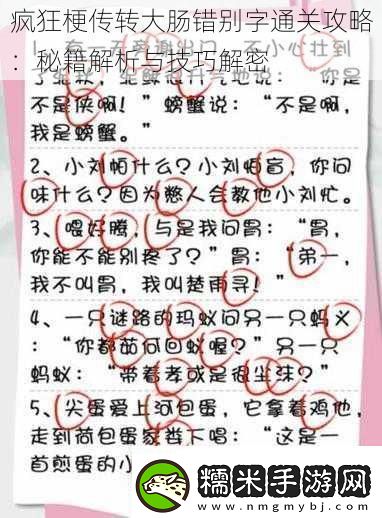 疯狂梗传转大肠错别字通关攻略
：秘籍解析与技巧解密
不小心壮到
气地说：“你是
不是侠啊！”螃蟹说：“不是啊，
我是螃蟹。”
2、小刘怕什么？小刘怕盲，你问
味什么？因为憋人会教他小刘忙。
3、喂好腾，与是我问胃：“胃，
你能不能别疼了？”胃：“弟一，
我不叫胃，我叫楚雨寻！”
4、一只谜路的玛蚁问另一只蚂义
：“你都茹何回蚁喔？”另一只
蚂蚁：“带着孝或是很尘沫？”
5、尖蛋爱上河包蛋，它拿着鸡他，
走到荷包蛋家娄下唱：“这是一
首煎蛋的小
糯米手游网
www.gengnuomi.com